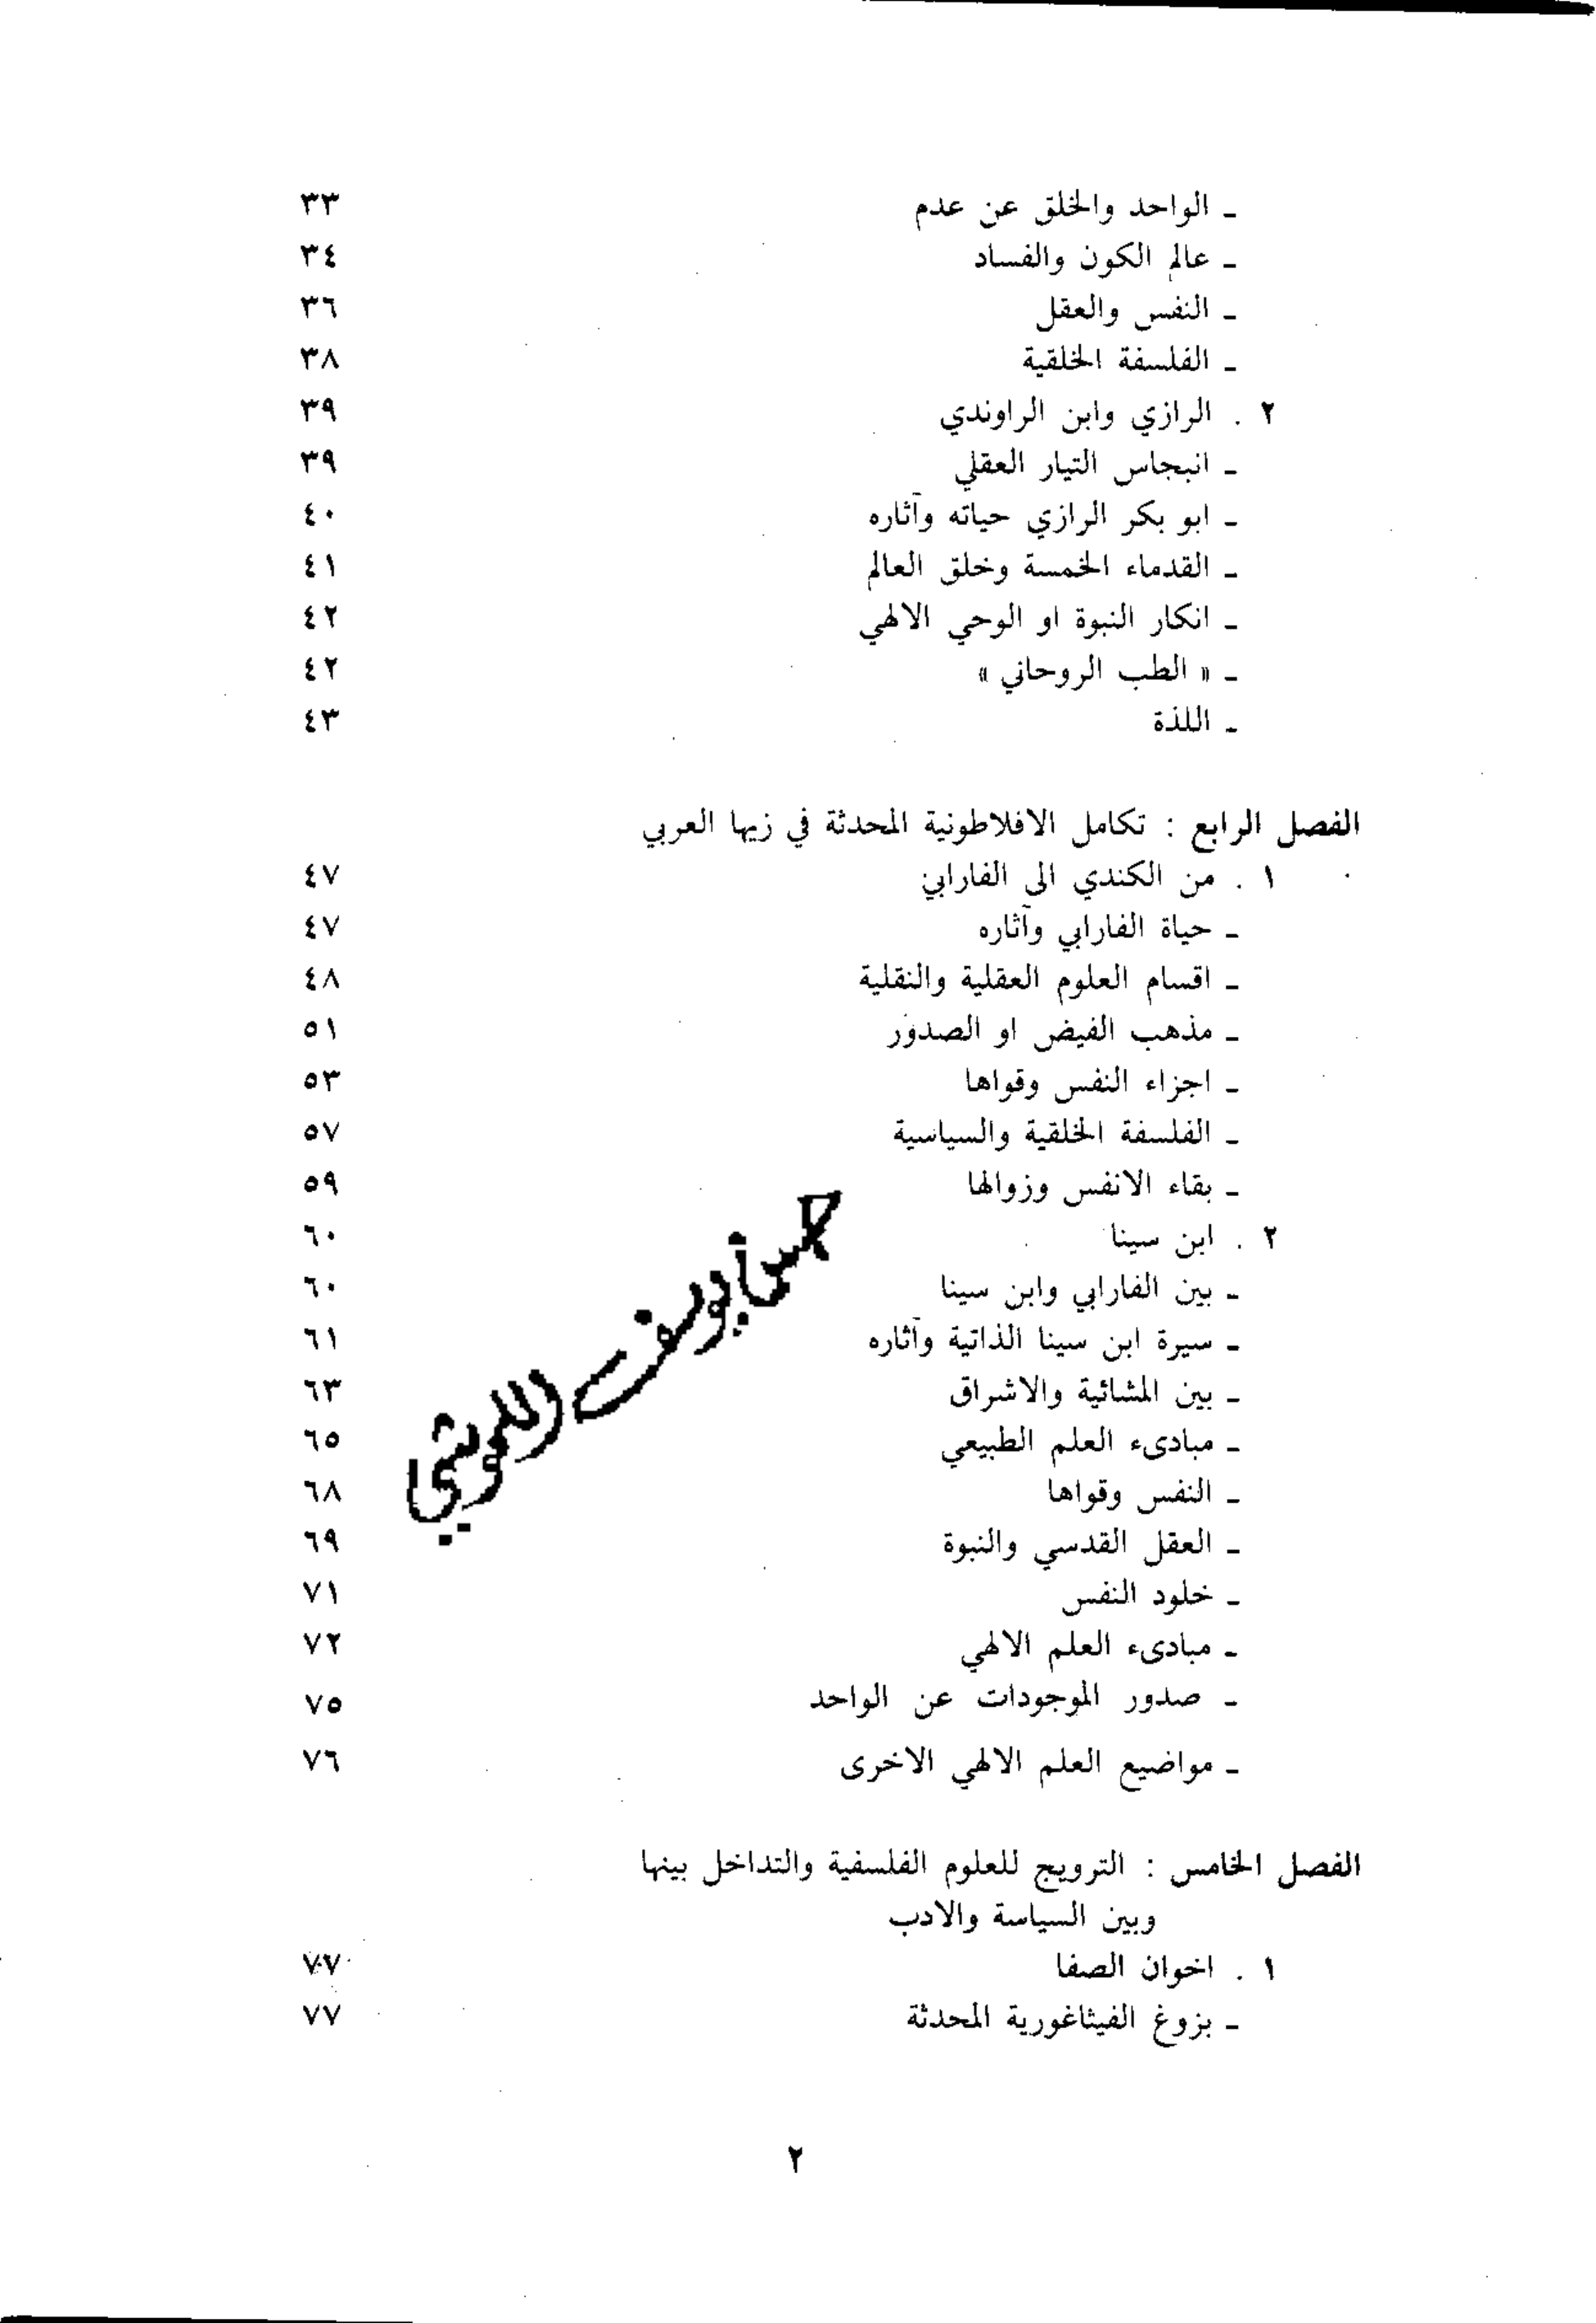 ـ الواحد والخلق عن عدم ٣٣
ـ عالم الكون والفساد ٣٤
ـ النفس والعقل ٣٦
ـ الفلسفة الخلقية ٣٨
٢ . الرازي وابن الراوندي ٣٩
ـ انبجاس التيار العقلي ٣٩
ـ ابو بكر الرازي حياته وآثاره ٤٠
ـ القدماء الخمسة وخلق العالم ٤١
ـ انكار النبوة او الوحي الالهي ٤٢
ـ « الطب الروحاني » ٤٢
ـ اللذة ٤٣
الفصل الرابع : تكامل الافلاطونية المحدثة في زيها العربي
١ . من الكندي الى الفارابي ٤٧
ـ حياة الفارابي وآثاره ٤٧
ـ اقسام العلوم العقلية والنقلية ٤٨
ـ مذهب الفيض او الصدور ٥١
ـ اجزاء النفس وقواها ٥٣
ـ الفلسفة الخلقية والسياسية ٥٧
ـ بقاء الانفس وزوالها ٥٩
٢ . ابن سينا ٦٠
ـ بين الفارابي وابن سينا ٦٠
ـ سيرة ابن سينا الذاتية وآثاره ٦١
ـ بين المشائية والاشراق ٦٣
ـ مبادىء العلم الطبيعي ٦٥
ـ النفس وقواها ٦٨
ـ العقل القدسي والنبوة ٦٩
ـ خلود النفس ٧١
ـ مبادىء العلم الالهي ٧٢
ـ صدور الموجودات عن الواحد ٧٥
ـ مواضيع العلم الالهي الاخرى ٧٦
الفصل الخامس : الترويج للعلوم الفلسفية والتداخل بينها
وبين السياسة والادب
١ . اخوان الصفا ٧٧
ـ بزوغ الفيثاغورية المحدثة ٧٧
٢